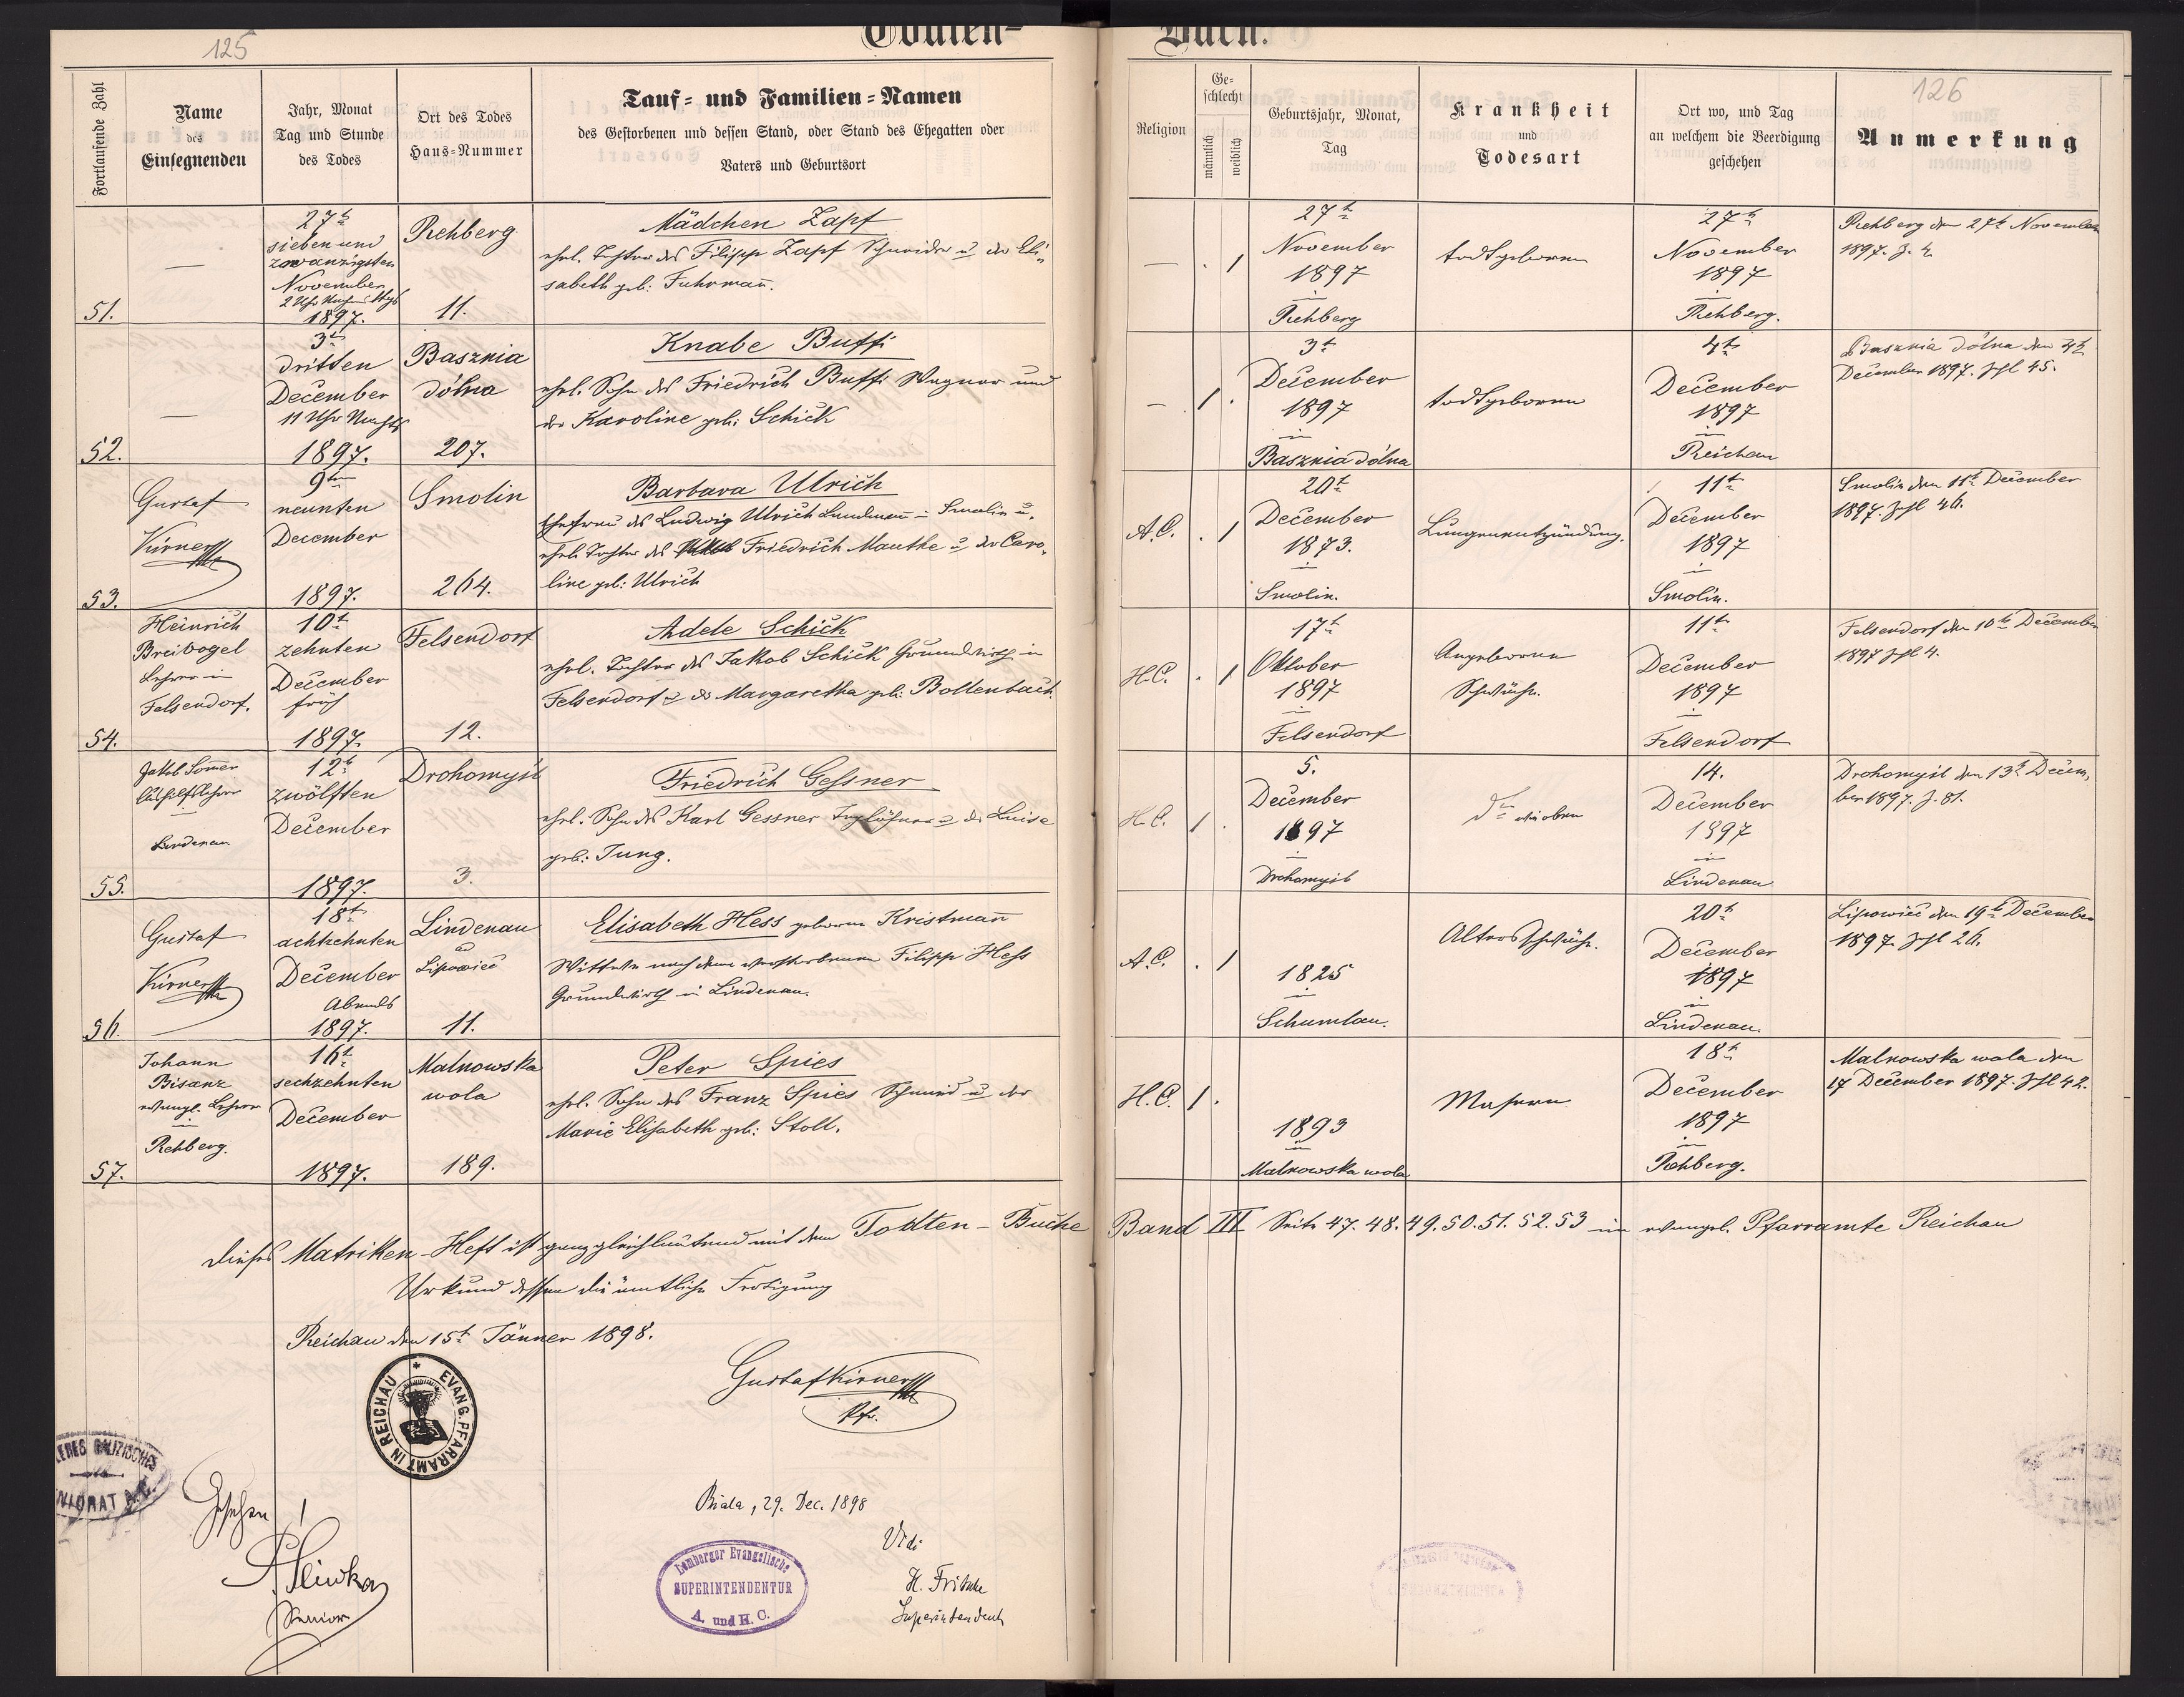 125
Todten-
Fortlaufende Zahl
Name
des
Einsegnenden
Jahr, Monat
Tag und Stunde
des Todes
Ort des Todes
Haus-Nummer
Tauf- und Familien-Namen
des Gestorbenen und dessen Stand, oder Stand des Ehegatten oder
Vaters und Geburtsort
51.
—
27t
sieben und
zwanzigsten
November
2 Uhr
1897.
Rehberg
11.
Mädchen Zapf
ehel. Tochter des Filipp Zapf Schneider u. der Eli-
sabeth geb: Fuhrmañ.
52.
—
3t
dritten
December
11 Uhr Nachts
1897.
Basznia
dólna
207.
Knabe Buffi
ehel. Sohn des Friedrich Buffi Wagner und
der Karoline geb: Schick
53.
Gustaf
Kirner
9ten
neunten
December
1897.
Smolin
264.
Barbara Ulrich
Ehefrau des Ludwig Ulrich Landmañ in Smolin u.
ehel. Tochter des Friedrich Mauthe u der Caro-
line geb: Ulrich
54.
Heinrich
Breivogel
Lehrer in
Felsendorf.
10t
zehnten
December
früh
1897.
Felsendorf
12.
Adele Schick
ehel. Tochter des Jakob Schick Grundwirth in
Felsendorf u der Margaretha geb: Bollenbach.
55.
Jakob Som̄er
Aushilfslehrer
Lindenau
12t
zwölften
December
1897.
Drohomyśl
3.
Friedrich Gessner
ehel. Sohn des Karl Gessner Taglöhner u der Luise
geb: Jung.
56.
Gustaf
Kirner
18t
achtzehnten
December
Abends
1897.
Lindenau
ad
Lipowiec
11.
Elisabeth Hess geborne Kristmañ
Wittwe nach dem verstorbenen Filipp Hess
Grundwirth in Lindenau.
57.
Johann
Bisanz
evangl. Lehrer
in
Rehberg.
16t
sechzehnten
December
1897.
Malnowska
wola
189.
Peter Spies
ehel. Sohn des Franz Spies Schmied u der
Marie Elisabeth geb: Stoll.
126
Buch.
Religion
Ge-
schlecht
männlich
weiblich
Geburtsjahr, Monat,
Tag
Krankheit
und
Todesart
Ort wo, und Tag
an welchem die Beerdigung
geschehen
Anmerkung
— . 1
27t
November
1897
in
Rehberg
todtgeboren
27t
November
1897
in
Rehberg.
Rehberg den 27t November
1897. Z. 4.
— 1 .
3t
December
1897
in
Basznia dólna
todtgeboren
4t
December
1897
in
Reichau
Basznia dolna den 4t
December 1897. Zhl 45.
A.C. . 1
20t
December
1873.
in
Smolin.
Lungenentzündung.
11t
December
1897
in
Smolin.
Smolin den 11t December
1897. Zhl 46.
H.C. . 1
17t
Oktober
1897
in
Felsendorf
Angeborene
Schwäche.
11t
December
1897
in
Felsendorf
Felsendorf den 10t December
1897 Zhl 4.
H.C. 1 .
5.
December
1897
in
Drohomyśl
dto wie oben
14.
December
1897
in
Lindenau
Drohomyśl den 13t Decem-
ber 1897. Z. 81.
A.C. . 1
1825
in
Schumlau.
Altersschwäche.
20t
December
1897
in
Lindenau.
Lipowiec den 19t December
1897. Zhl 26.
H.C. 1 .
1893
in
Malnowska wola
Masern
18t
December
1897
in
Rehberg.
Malnowska wola den
17 December 1897. Zhl 42.
Dieses Matriken-Heft ist ganz gleichlautend mit dem Todten-Buche Band III Seite 47. 48. 49. 50. 51. 52. 53 im evangel. Pfarramte Reichau
Urkund dessen die ämtliche Fertigung
Reichau den 15t Jänner 1898.
EVANG. PFARRAMT IN REICHAU
Gustaf Kirner
Pfr.
GALIZISCHES
Gesehen!
Senior
Biala, 29. Dec. 1898
Lemberger Evangelische
SUPERINTENDENTUR
A. und H. C.
Vidi
H. Fritsche
Superintendent